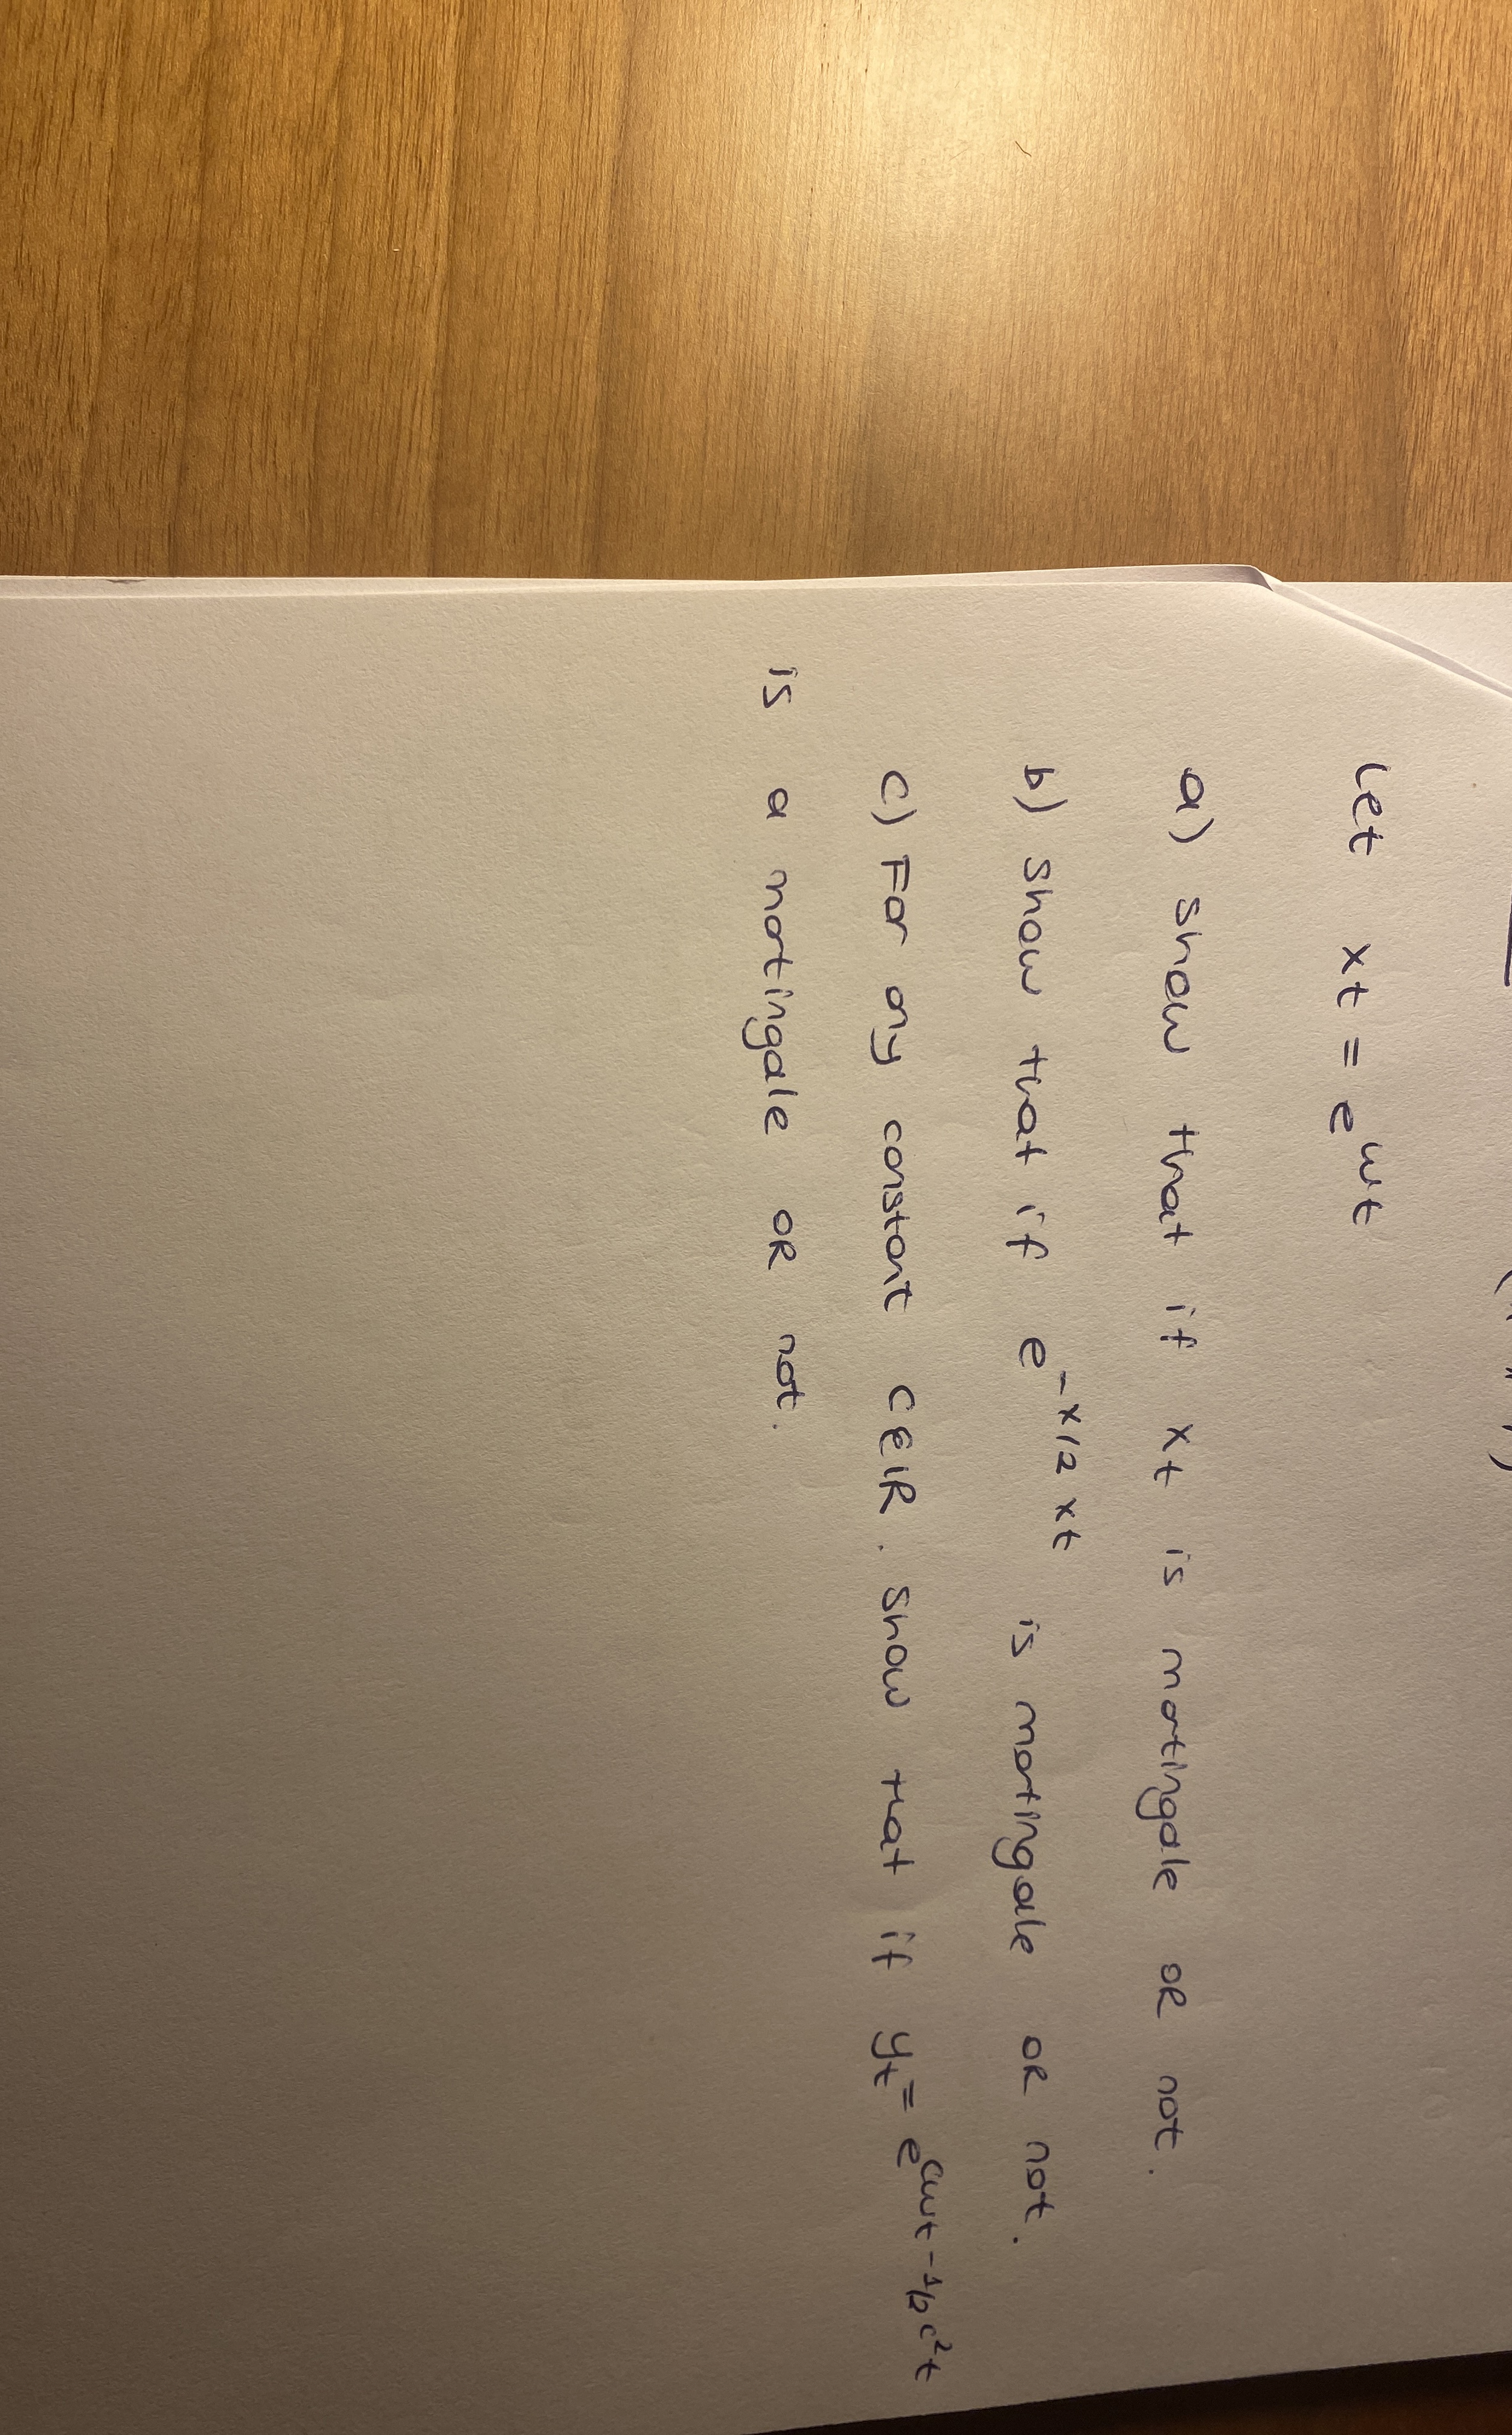 Let xt = e^wt
a) Show that if xt is martingale OR not.
b) Show that if e^-x/2 xt is martingale OR not.
c) For any constant C∈IR. Show that if yt = e^cwt - 1/2 c²t
is a martingale OR not.